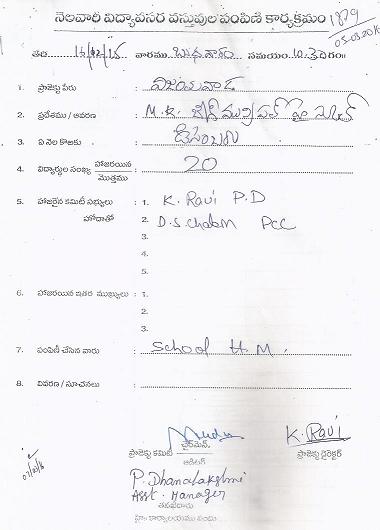 నెలవారీ విద్యావసర వస్తువుల పంపిణి కార్యక్రమం
1879
తేది 16/12/15 వారము బుధవారం సమయం 10.30గం॥
1. ప్రాజెక్టు పేరు : విజయవాడ
2. ప్రదేశము / ఆవరణ : M.K. మున్సిపల్ హై స్కూల్
3. ఏ నెల కొఱకు : డిసెంబరు
4. విద్యార్థుల సంఖ్య హాజరయిన/మొత్తము : 20
5. హాజరైన కమిటీ సభ్యులు : 1. K. Ravi P.D
హోదాతో 2. D.S. PCC
3.
4.
5.
6. హాజరయిన ఇతర ముఖ్యులు : 1.
2.
3.
7. పంపిణీ చేసిన వారు : School H.M.
8. వివరణ / సూచనలు :
K. Ravi
ప్రాజెక్టు కమిటీ చైర్మెన్. ప్రాజెక్టు డైరెక్టర్
ఆడిటర్
P. Dhanalakshmi
Asst. Manager
తనిఖీదారు
హెడ్ కార్యాలయము వందు